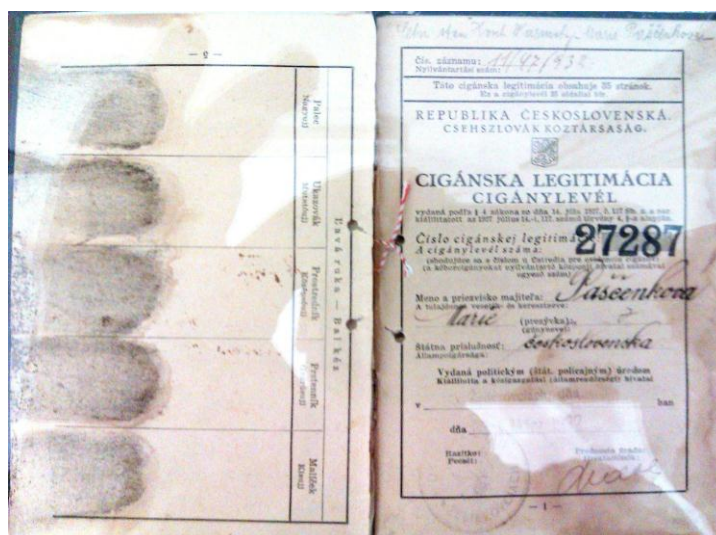 — 5 —
Palec
Nagyujj
Ukazovák
Mutatóujj
Prostredník
Középsőujj
Prstenník
Gyűrűsujj
Malíček
Kisujj
Ľavá ruka — Bal kéz
Marie Paščenkova
Čís. záznamu: 11/47/932
Nyilvántartási szám:
Táto cigánska legitimácia obsahuje 35 stránok.
Ez a cigánylevél 35 oldalból áll.
REPUBLIKA ČESKOSLOVENSKÁ.
CSEHSZLOVÁK KÖZTÁRSASÁG.
CIGÁNSKA LEGITIMÁCIA
CIGÁNYLEVÉL
vydaná podľa § 4 zákona zo dňa 14. júla 1927, č. 117 Sb. z. a nar.
kiállíttatott az 1927 július 14.-i, 117. számú törvény 4. §-a alapján.
Číslo cigánskej legitim 27287
A cigánylevél száma:
(shodujúce sa s číslom u Ústredia pre evidenciu cigáňov)
(a kóborcigányokat nyilvántartó központi hivatal számával
egyező szám)
Meno a priezvisko majiteľa: Paščenkova
A tulajdonos vezeték- és keresztneve:
Marie (prezývka):
(gúnyneve):
Štátna príslušnosť: československa
Állampolgársága:
Vydaná politickým (štát. policajným) úradom
Kiállította a közigazgatási (államrendőrségi) hivatal
v ban
dňa
Razítko:
Pecsét:
Prednosta úradu:
— 1 —